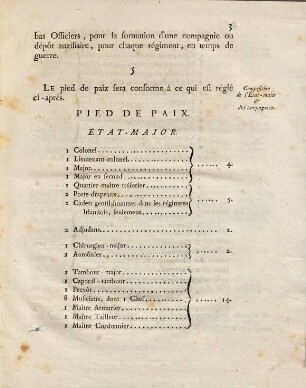 3
bas Officiers, pour la formation d'une compagnie ou
dépôt auxiliaire, pour chaque régiment, en temps de
guerre.
5
LE pied de paix sera conforme à ce qui est réglé
ci-après.
Composition
de l'État-major
&
des compagnies.
PIED DE PAIX.
ÉTAT-MAJOR.
1 Colonel
1 Lieutenant-colonel
1 Major
1 Major en second
4.
1 Quartier-maître trésorier
2 Porte-drapeaux
2 Cadets gentilshommes dans les régimens
Irlandois, seulement
5.
2 Adjudans 2.
1 Chirurgien-major
1 Aumônier
2.
1 Tambour-major
1 Caporal-tambour
1 Prevôt
8 Musiciens, dont 1 Chef
1 Maître Armurier
1 Maître Tailleur
1 Maître Cordonnier
14.